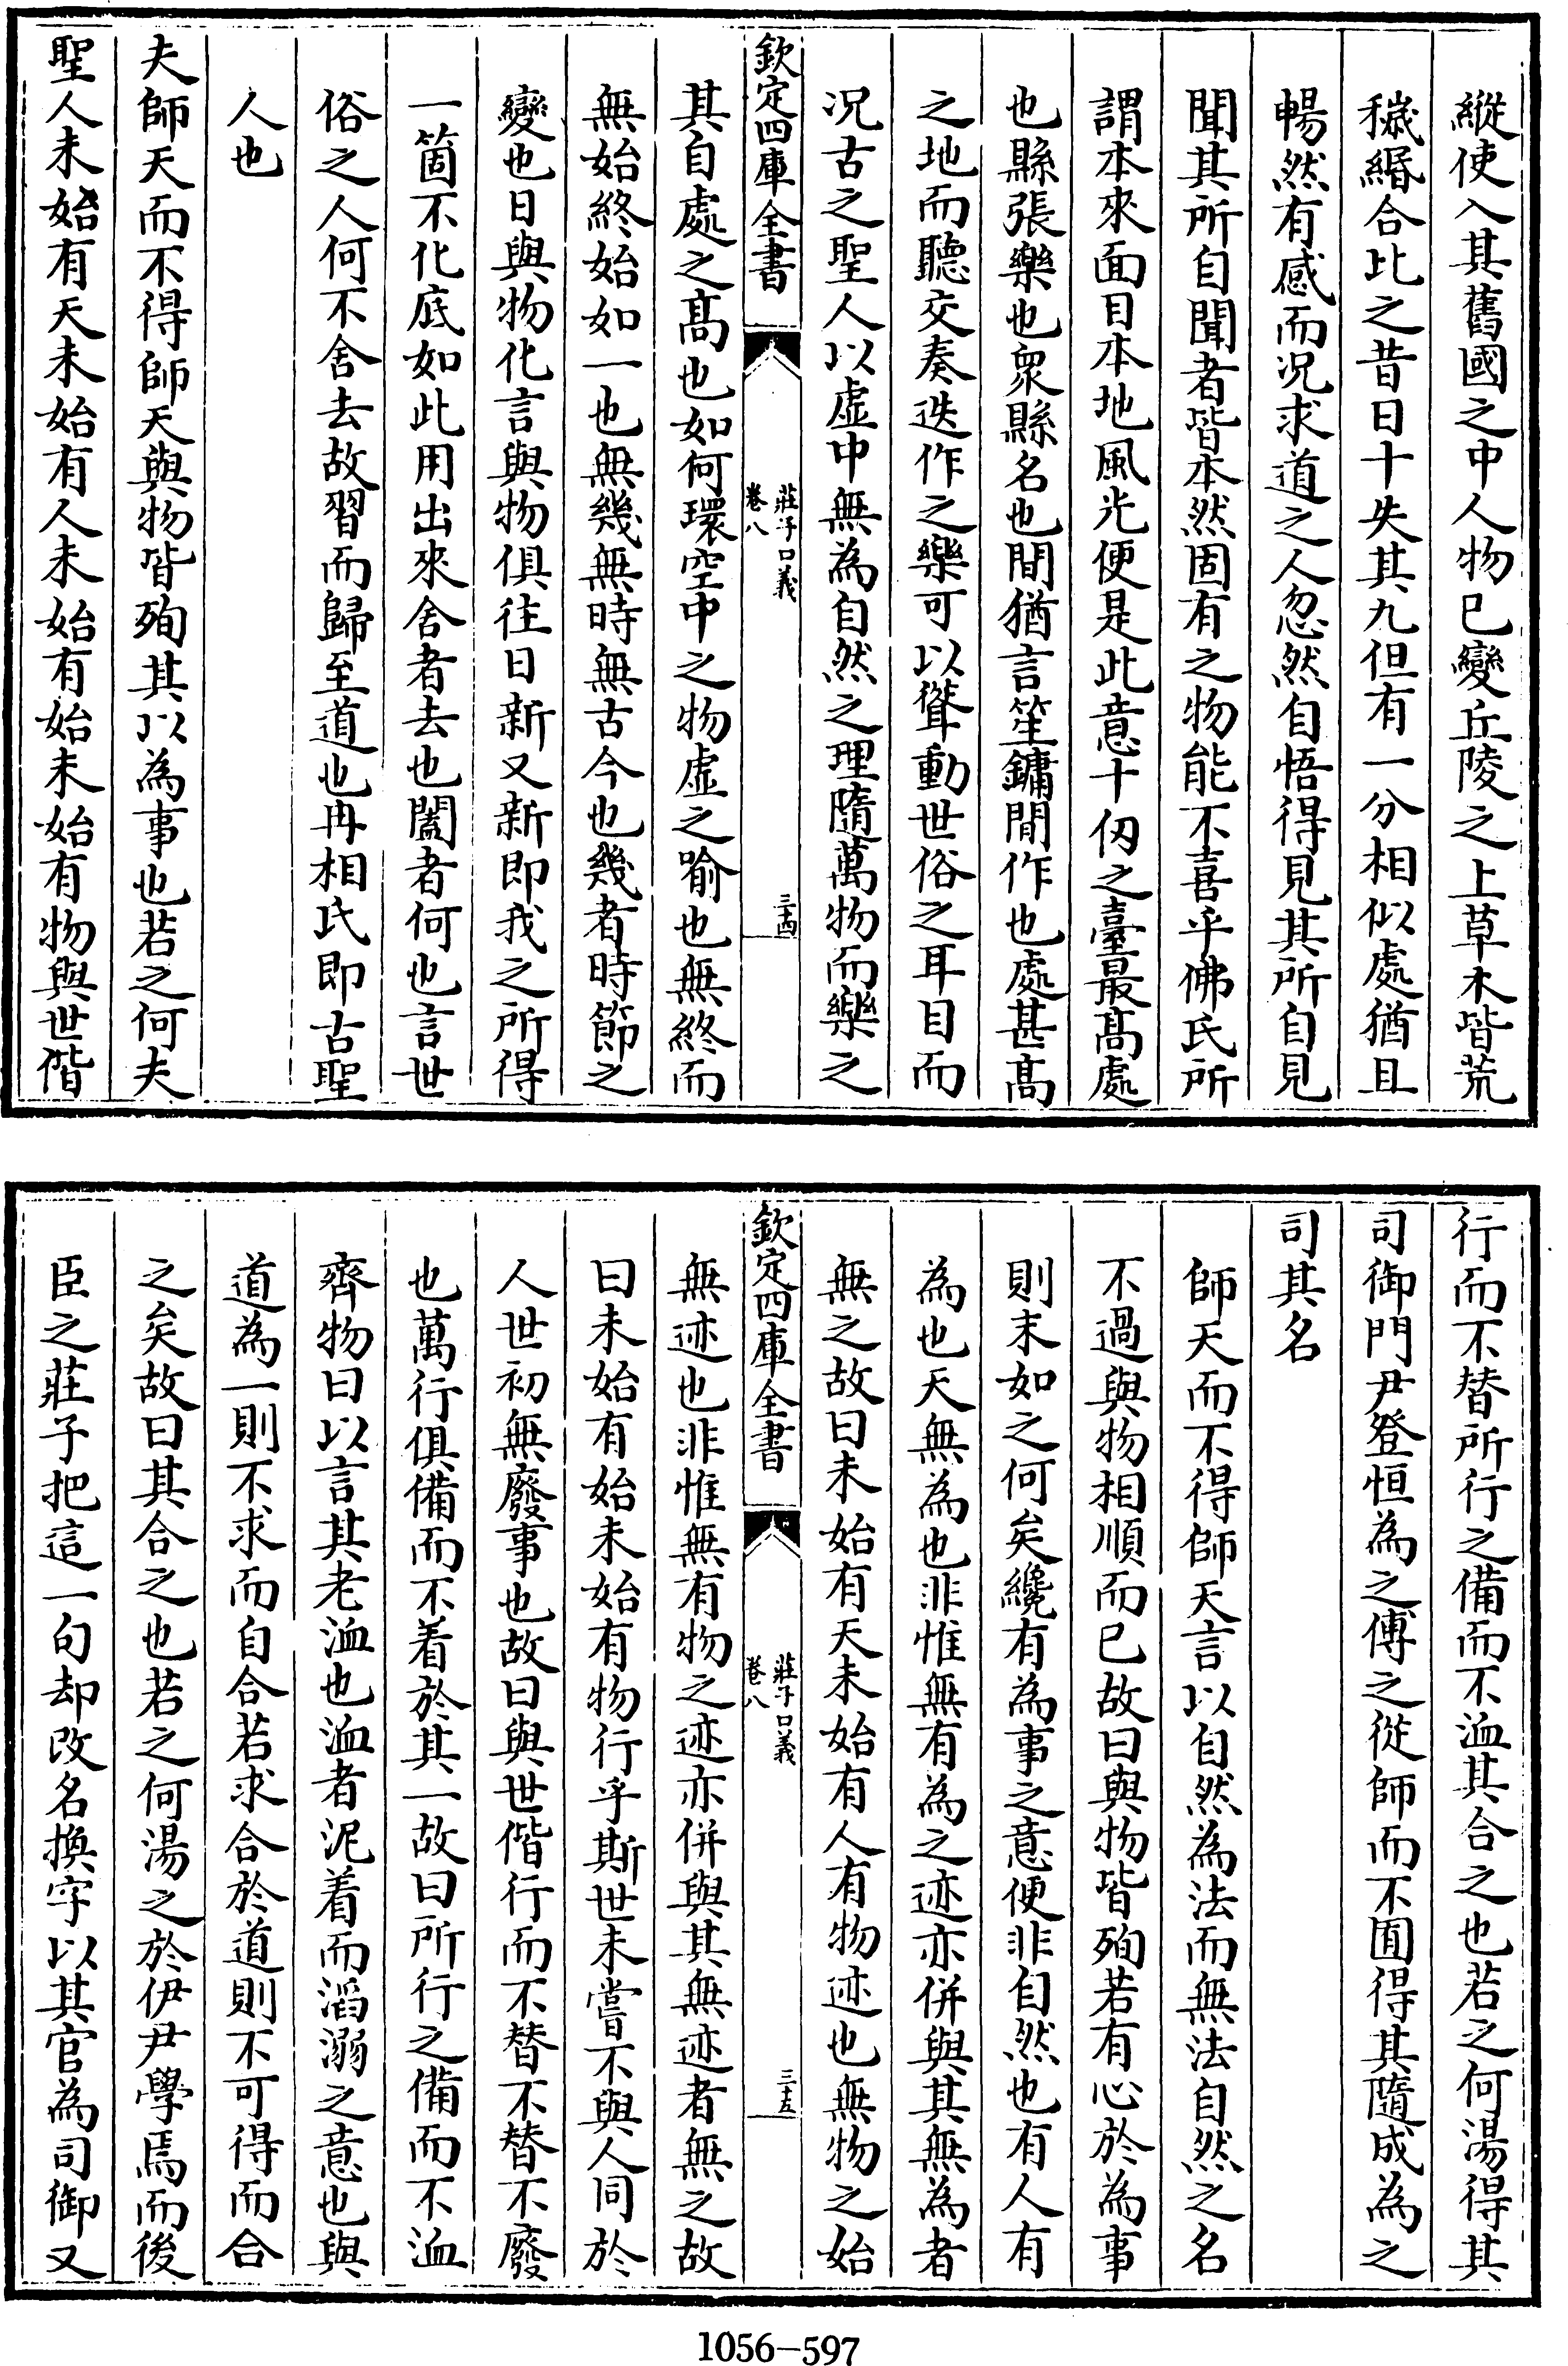 縱使入其舊國之中人物已變丘陵之上草木皆荒
穢緡合比之昔日十失其九但有一分相似處猶且
暢然有感而况求道之人忽然自悟得見其所自見
聞其所自聞者皆本然固有之物能不喜乎佛氏所
謂本來面目本地風光便是此意十仭之臺最髙處
也縣張樂也衆縣名也間猶言笙鏞間作也處甚髙
之地而聽交奏迭作之樂可以聳動世俗之耳目而
况古之聖人以虛中無為自然之理隨萬物而樂之
欽定四庫全書
莊子口義
卷八
三十四
其自處之髙也如何環空中之物虛之喻也無終而
無始終始如一也無幾無時無古今也幾者時節之
變也日與物化言與物俱往日新又新即我之所得
一箇不化底如此用出來舍者去也闔者何也言世
俗之人何不舍去故習而歸至道也冉相氏即古聖
人也
夫師天而不得師天與物皆殉其以為事也若之何夫
聖人未始有天未始有人未始有始未始有物與世偕
行而不替所行之備而不洫其合之也若之何湯得其
司御門尹登恒為之傅之從師而不囿得其隨成為之
司其名
師天而不得師天言以自然為法而無法自然之名
不過與物相順而已故曰與物皆殉若有心於為事
則末如之何矣纔有為事之意便非自然也有人有
為也天無為也非惟無有為之迹亦併與其無為者
無之故曰未始有天未始有人有物迹也無物之始
欽定四庫全書
莊子口義
卷八
三十五
無迹也非惟無有物之迹亦併與其無迹者無之故
曰未始有始未始有物行乎斯世未嘗不與人同於
人世初無廢事也故曰與世偕行而不替不替不廢
也萬行俱備而不着於其一故曰所行之備而不洫
齊物曰以言其老洫也洫者泥着而滔溺之意也與
道為一則不求而自合若求合於道則不可得而合
之矣故曰其合之也若之何湯之於伊尹學焉而後
臣之莊子把這一句却改名換字以其官為司御又
1056-597